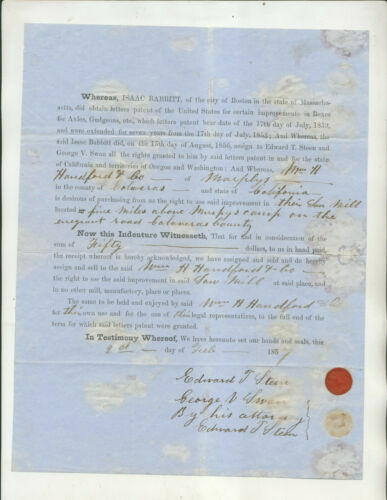 Whereas, ISAAC BABBITT, of the city of Boston in the state of Massachu-
setts, did obtain letters patent of the United States for certain improvements in Boxes
for Axles, Gudgeons, etc., which letters patent bear date of the 17th day of July, 1839,
and were extended for seven years from the 17th day of July, 1853; And Whereas, the
said Isaac Babbitt did, on the 15th day of August, 1856, assign to Edward T. Steen and
George V. Swan all the rights granted to him by said letters patent in and for the state
of California and territories of Oregon and Washington: And Whereas, Wm H
Handford & Co of Murphys
in the county of Calaveras and state of California
is desirous of purchasing from us the right to use said improvement in their Saw Mill
located five miles above Murpys camp on the
emigrant road Calaveras County
Now this Indenture Witnesseth, That for and in consideration of the
sum of Fifty dollars, to us in hand paid,
the receipt whereof is hereby acknowledged, we have assigned and sold and do hereby
assign and sell to the said Wm H Handford & Co
the right to use the said improvement in said Saw Mill at said place, and
in no other mill, manufactory, place or places.
The same to be held and enjoyed by said Wm H Handford & Co
for their own use and for the use of their legal representatives, to the full end of the
term for which said letters patent were granted.
In Testimony Whereof, We have hereunto set our hands and seals, this
9th day of Feb 1857
Edward T Steen
George V Swan
By his attorney
Edward T Steen